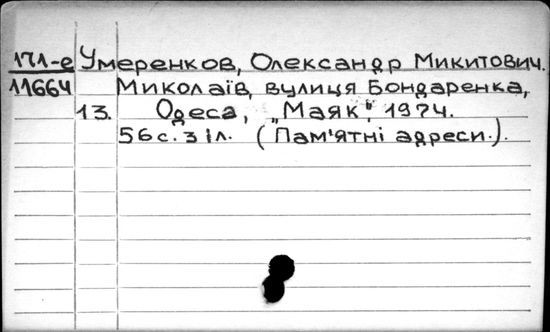 171-е Умеренков, Олександр Микитович.
11664 Миколаїв, вулиця Бондаренка,
13. Одеса, „Маяк", 1974.
56 с. з іл. (Пам'ятні адреси.).